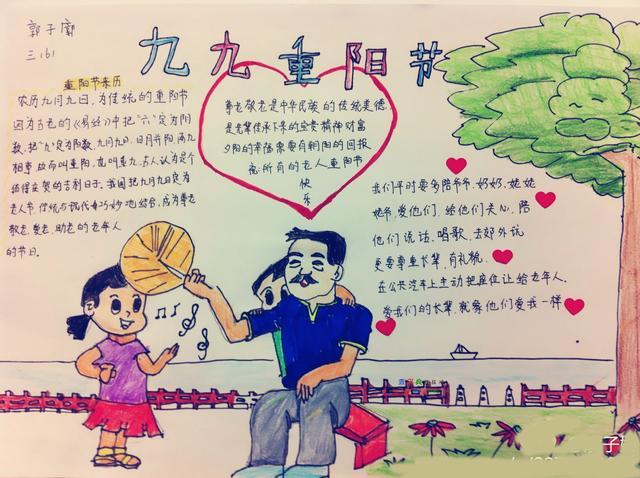 郭子廓
三(6)
九九重阳节
重阳节来历
农历九月九日,为传统的重阳节
因为古老的《易经》中把"六"定为阴
数,把"九"定为阳数,九月九日,日月并阳,两九
相重,故而叫重阳,也叫重九,古人认为是个
值得庆贺的吉利日子,我国把九月九日定为
老人节,传统与现代巧妙地结合,成为尊老
敬老、爱老、助老的老年人
的节日。
尊老敬老是中华民族的传统美德
是先辈传承下来的宝贵精神财富
夕阳的幸福需要有朝阳的回报
祝:所有的老人重阳节
快
乐
我们平时要多陪爷爷、奶奶、姥姥
姥爷,爱他们,给他们关心,陪
他们说话、唱歌,去郊外玩
更要尊重长辈,有礼貌,
在公共汽车上主动把座位让给老年人。
爱我们的长辈,就像他们爱我一样
子